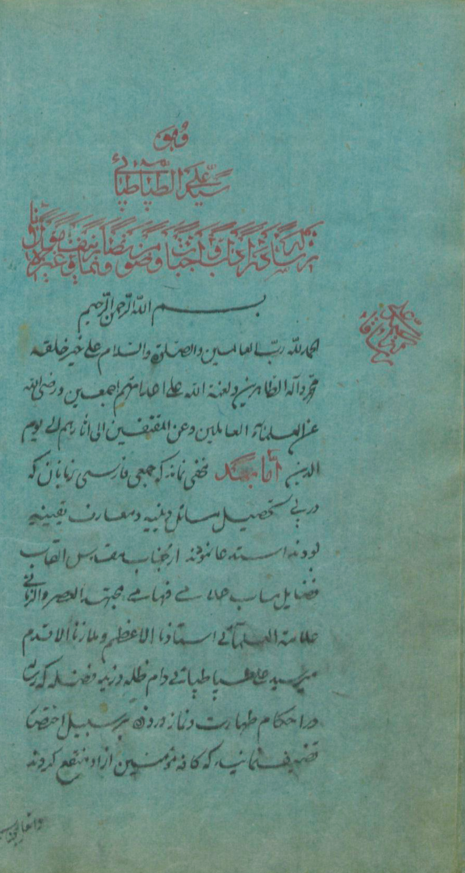 وقف
سید علی الطباطبائی
بسم الله الرحمن الرحیم
الحمدلله رب العالمین والصلوة والسلام علی خیر خلقه
محمد و اله الطاهرین و لعنة الله علی اعدائهم اجمعین و رضی الله
عن العلماء العاملین و عن المقتفین الی اثارهم الی یوم
الدین اما بعد مخفی نماند که جمعی فارسی زبانان که
در پی تحصیل مسائل دینیه و معارف یقینیه
بودند استدعا نمودند از جناب مقدس القاب
فضایل ماب مجتهد العصر والزمانی
علامة العلمائی استاذنا الاعظم و ملاذنا الاقدم
میر سید علی طباطبائی دام ظله و زید فضله که
در احکام طهارت و نماز و روزه بر سبیل اختصار
تصنیف نمایند که کافه مؤمنین از او منتفع کردند